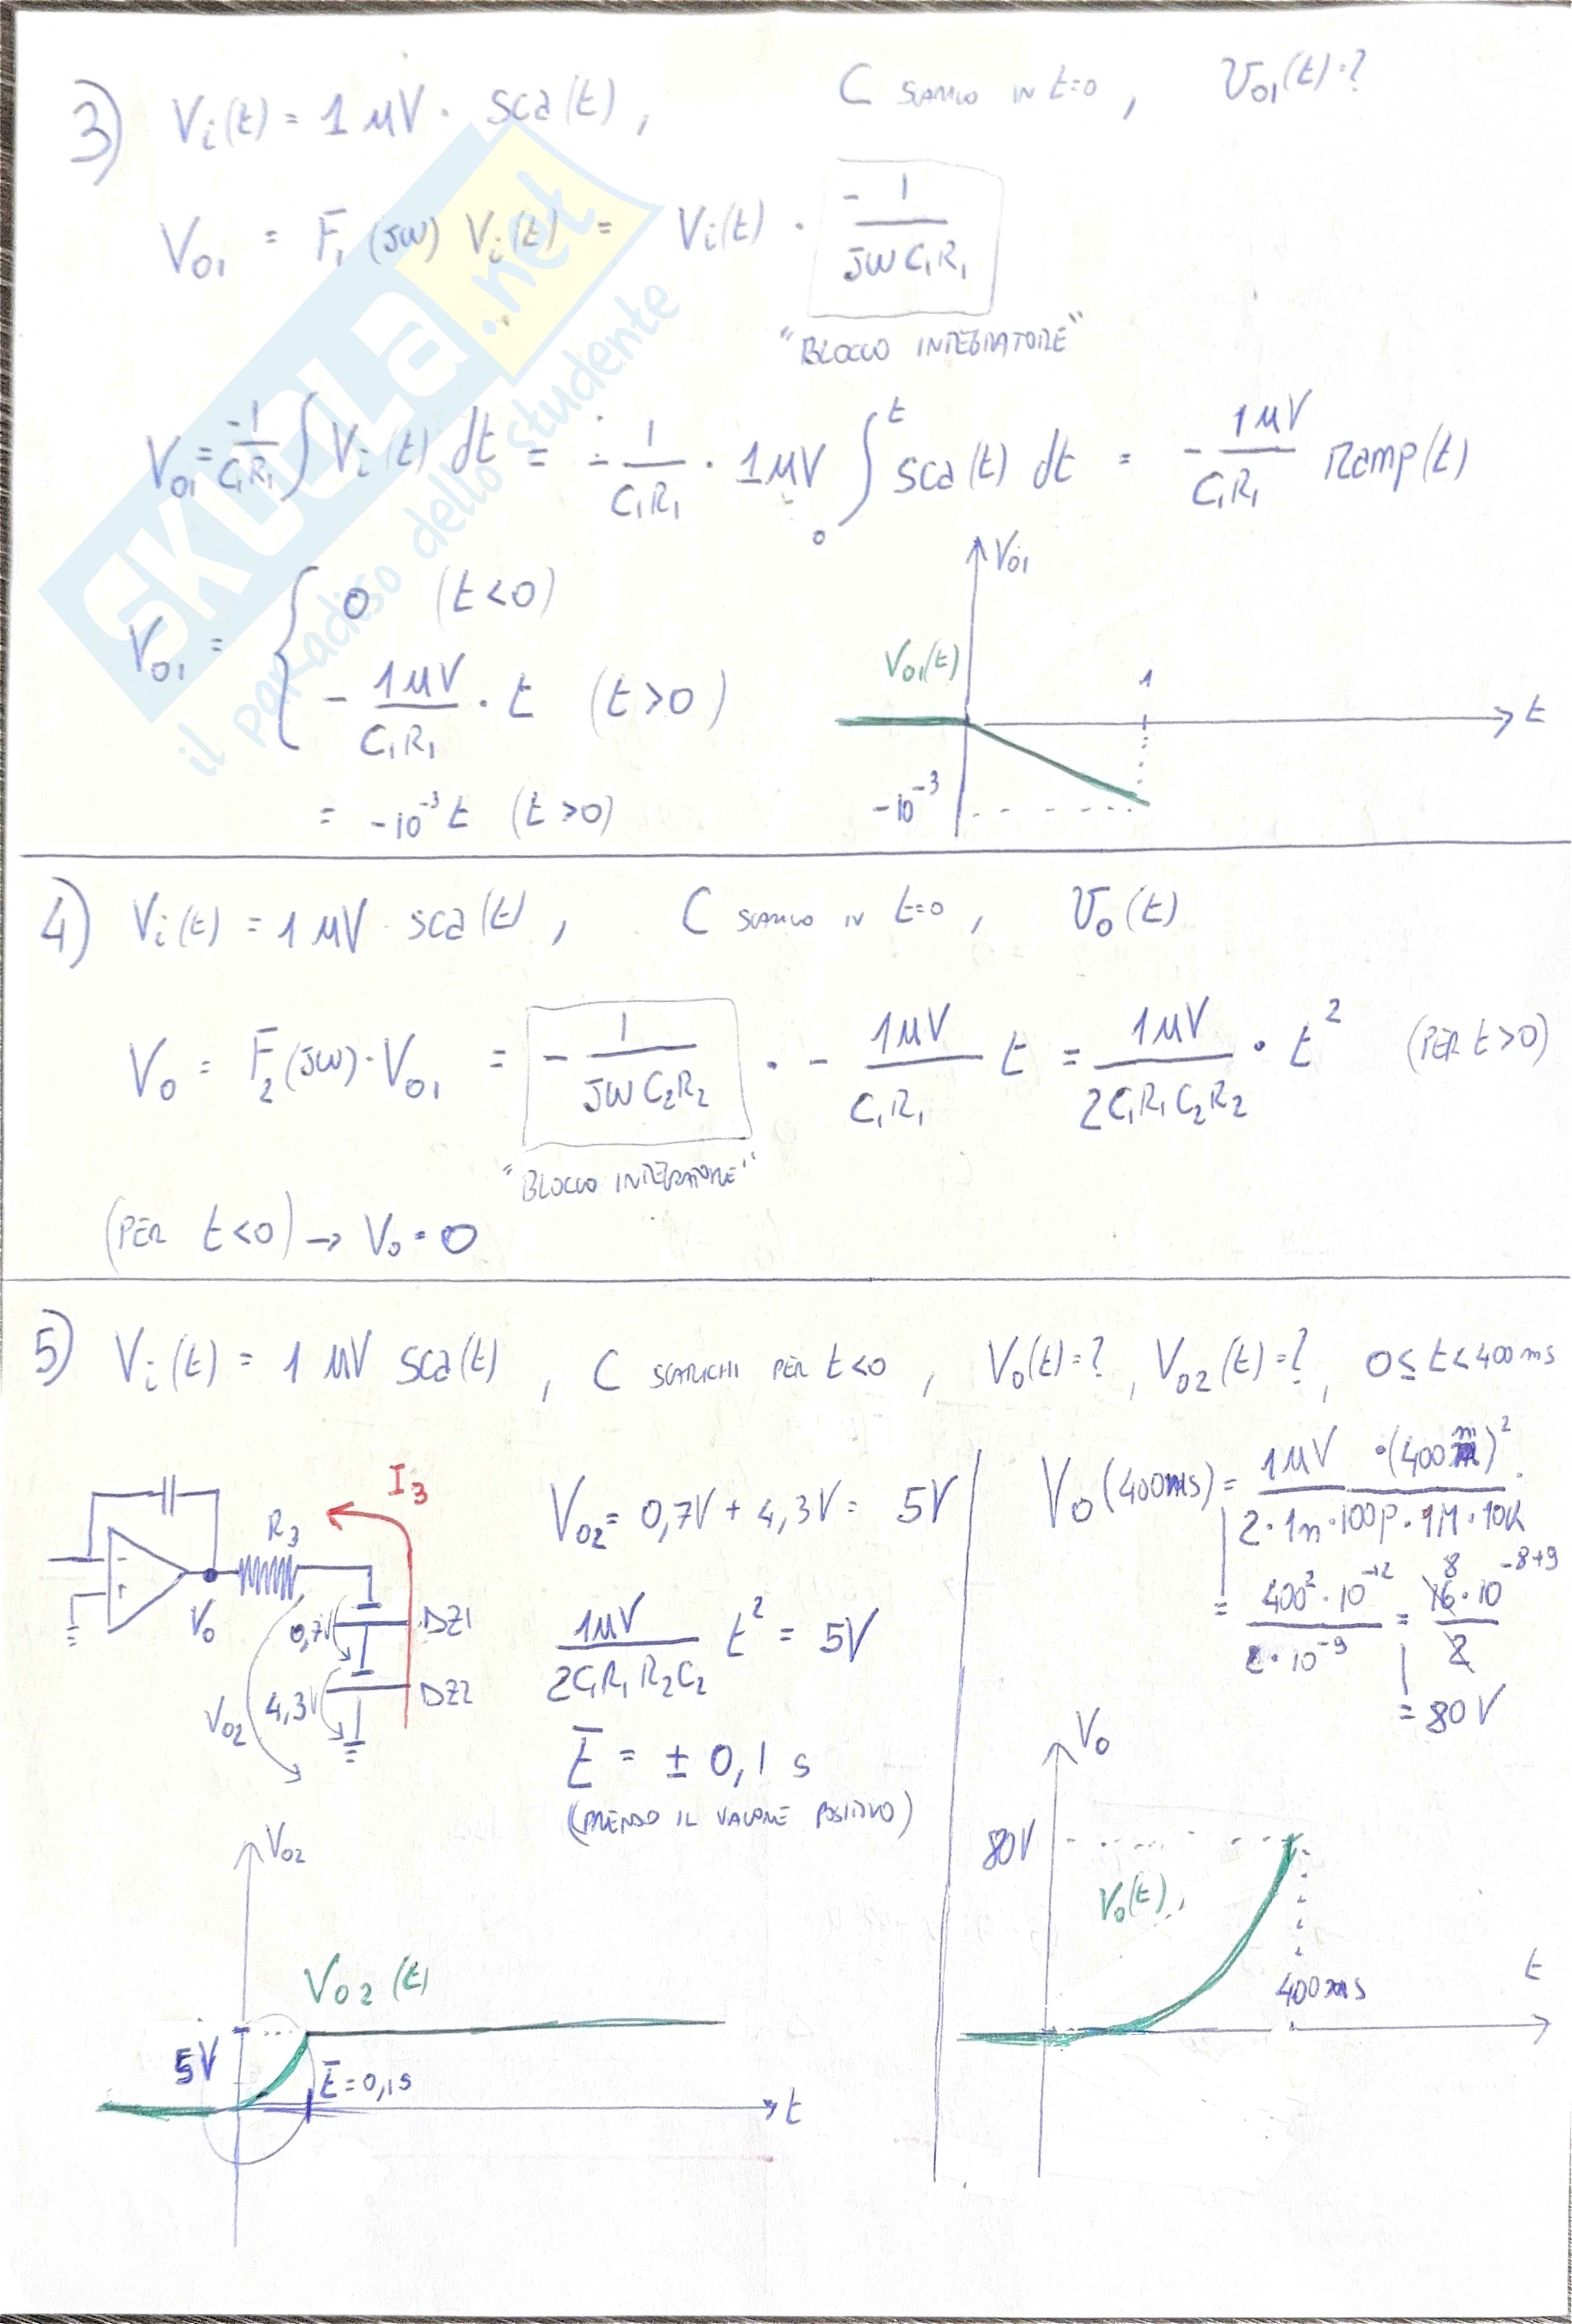 3) Vi(t) = 1 μV · sca(t), C scarico in t=0, Vo1(t)=?
Vo1 = F1(jω) Vi(t) = Vi(t) · - 1 / jωC1R1
"BLOCCO INTEGRATORE"
Vo1 = -1/C1R1 ∫ Vi(t) dt = - 1/C1R1 · 1μV ∫0^t sca(t) dt = - 1μV/C1R1 Ramp(t)
Vo1 = { 0 (t<0)
- 1μV/C1R1 · t (t>0)
= -10^-3 t (t>0)
Vo1
Vo1(t)
1
t
-10^-3
4) Vi(t) = 1 μV · sca(t), C scarico in t=0, Vo(t)
Vo = F2(jω)·Vo1 = - 1/jωC2R2 · - 1μV/C1R1 t = 1μV/2C1R1C2R2 · t^2 (PER t>0)
"BLOCCO INTEGRATORE"
(PER t<0) → Vo = 0
5) Vi(t) = 1 μV sca(t), C SCARICHI PER t<0, Vo(t)=?, Vo2(t)=?, 0≤t<400ms
I3
R3
-
+
Vo
0,7V
DZ1
4,3V
DZ2
Vo2
Vo2 = 0,7V + 4,3V = 5V
1μV/2C1R1R2C2 t^2 = 5V
t̄ = ± 0,1 s
(PRENDO IL VALORE POSITIVO)
Vo(400ms) = 1μV · (400m)^2 / 2·1n·100p·1M·10k
= 400^2·10^-12 / 2·10^-9 = 16·10^-8+9 / 2
8
= 80V
Vo2
Vo2(t)
5V
t̄=0,1s
t
Vo
80V
Vo(t)
400ms
t
SKUOLA.net
il paradiso dello studente